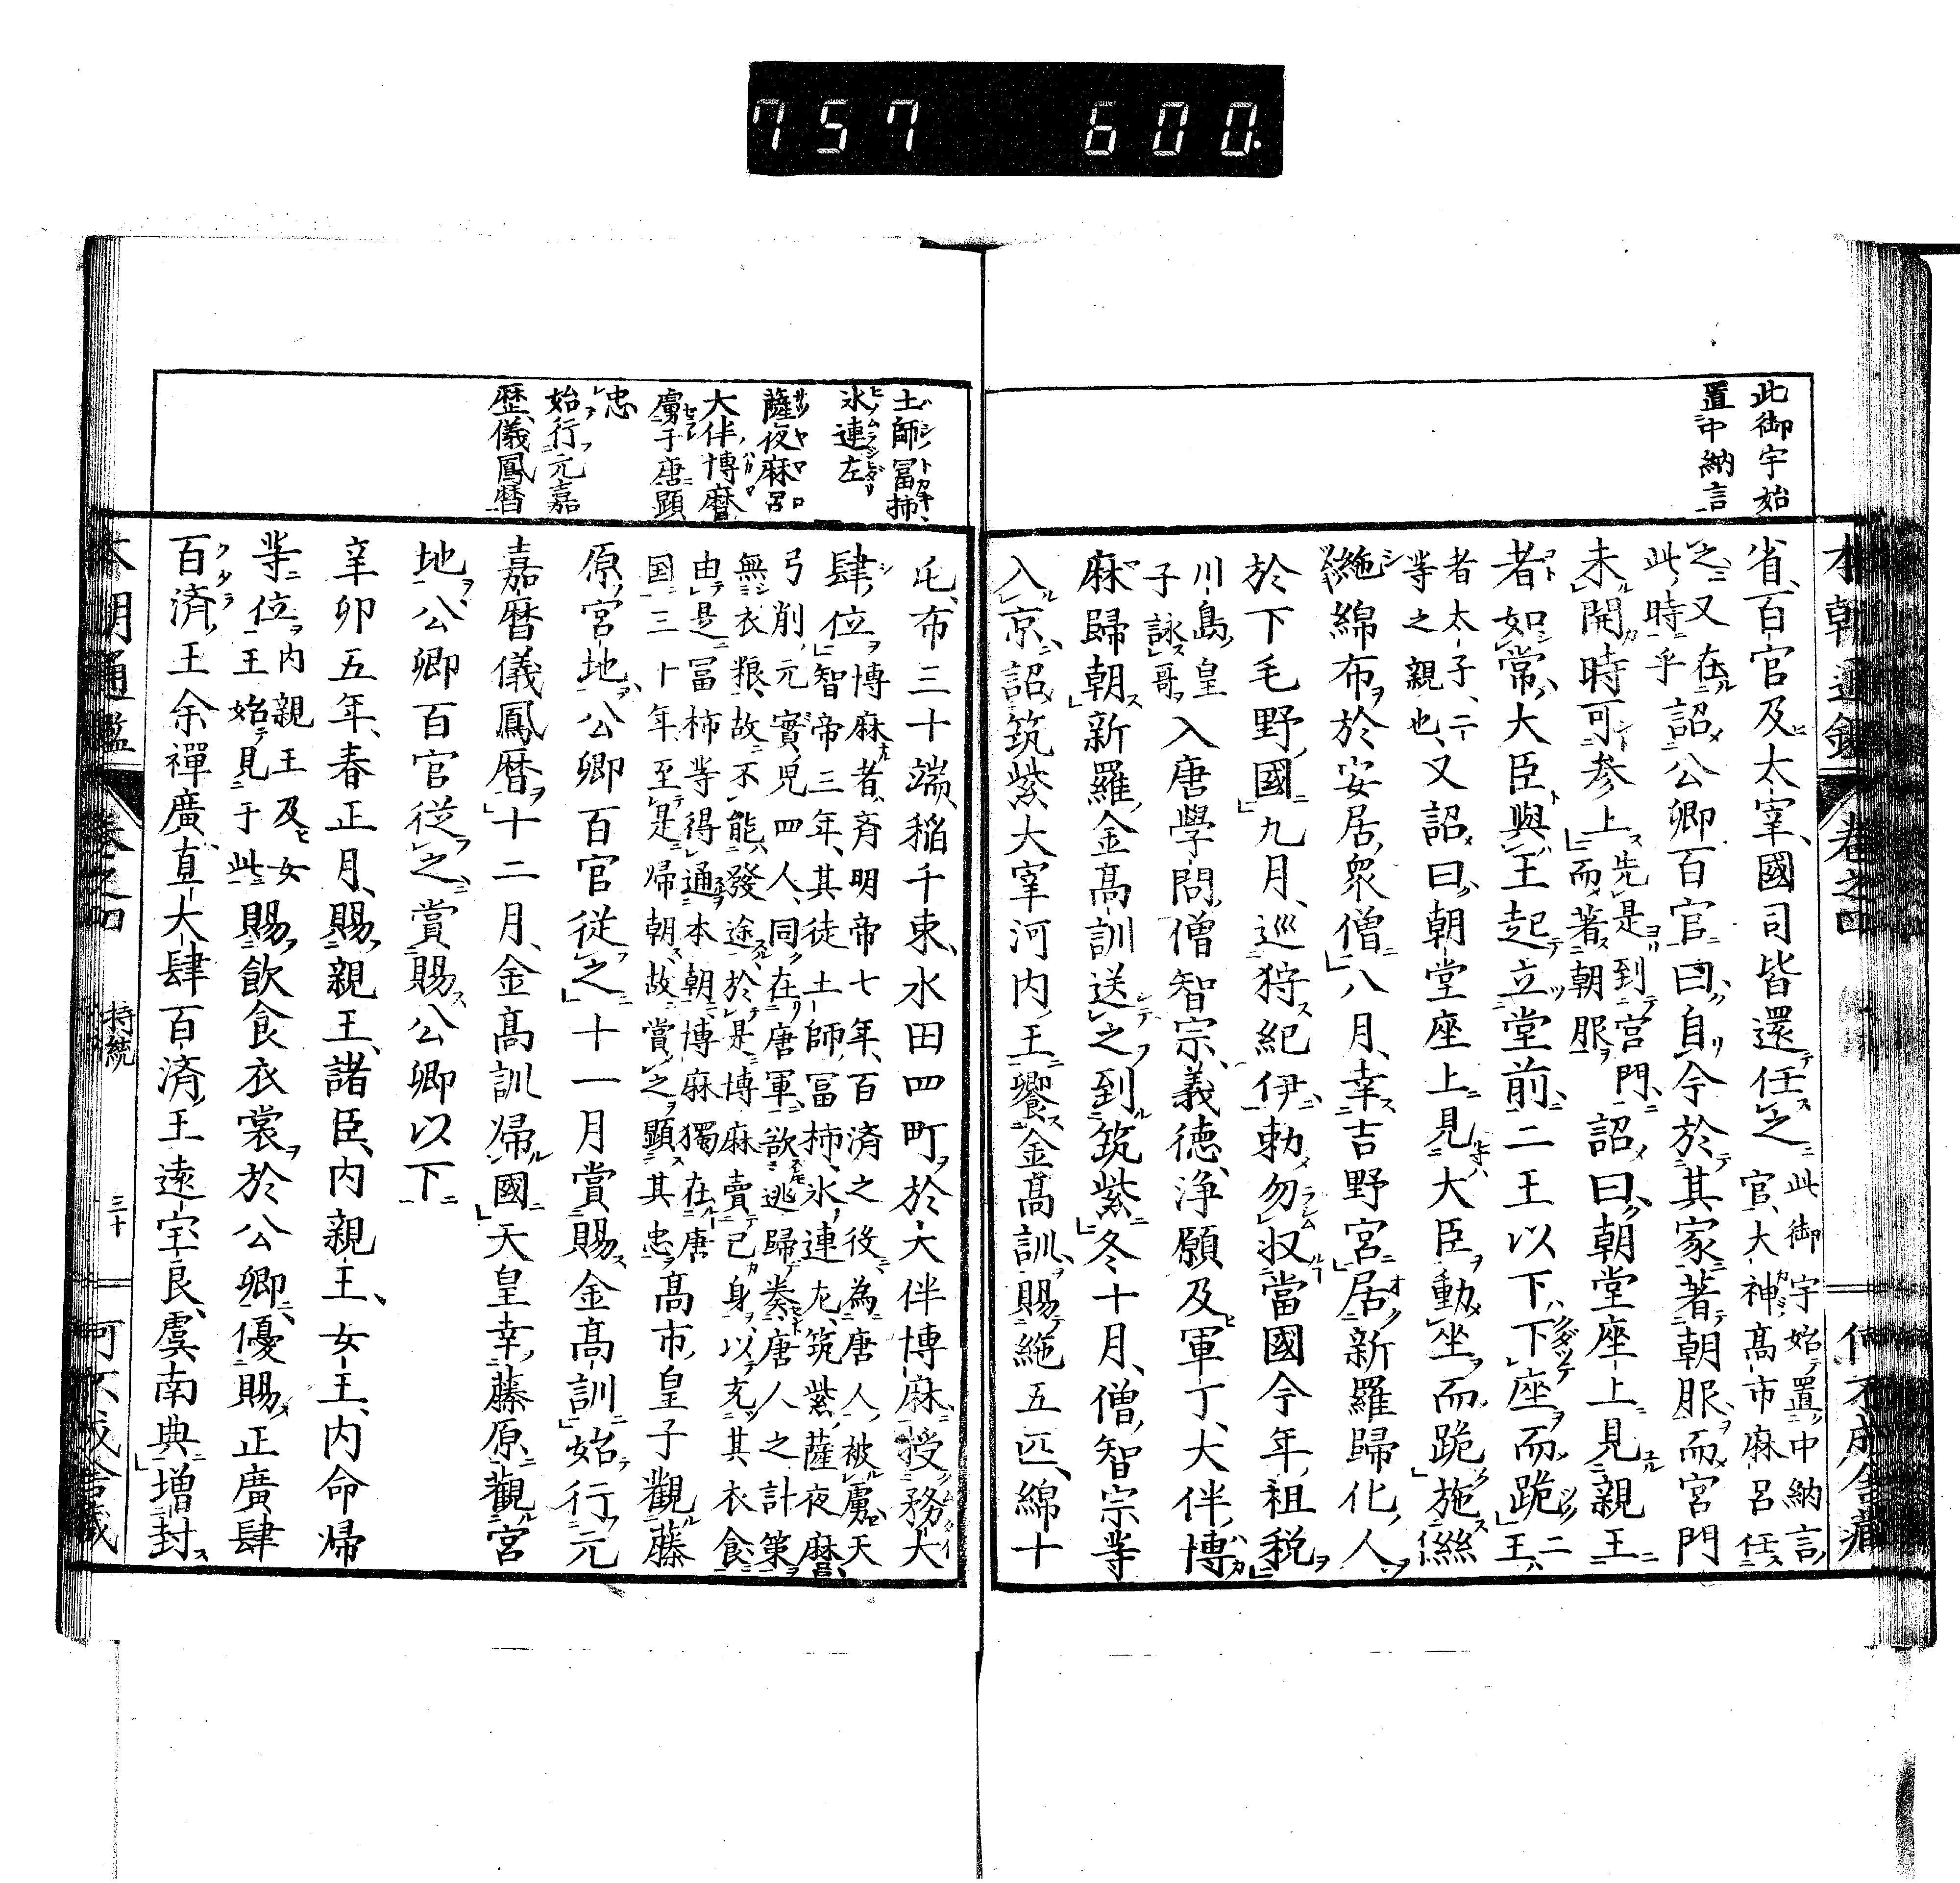 757 600.
此御宇始
置中納言
本朝通鑑 卷之四
省、百官及太宰、國司皆還任之 此御宇始置中納言
官、大神高市麻呂任
之、又在
此時乎 詔公卿百官曰、自今於其家著朝服、而宮門
未開時可参上 先是到宮門、
而著朝服 詔曰、朝堂座上見親王
者如常、大臣與王起立堂前、二王以下、下座而跪 二
王、
者太子、二
等之親也、又詔曰、朝堂座上見大臣、動坐而跪、施絲
絁綿布於安居衆僧、八月、幸吉野宮、居新羅歸化人
於下毛野國、九月、巡狩紀伊、勅勿収當國今年租税、
川島皇
子詠哥、入唐學問僧智宗、義德、淨願及軍丁大伴博
麻歸朝、新羅金高訓送之到筑紫、冬十月、僧智宗等
入京、詔筑紫大宰河内王饗金高訓、賜絁五匹、綿十
土師冨柿
氷連左
薩夜麻呂
大伴博麿
虜于唐顕
忠
始行元嘉
歴儀鳳暦
屯、布三十端、稲千束、水田四町、於大伴博麻授務大
肆位 博麻者、斉明帝七年、百済之役、為唐人被虜、天
智帝三年、其徒土師冨柿、氷連左、筑紫薩夜麻呂、
弓削元實児四人、同在唐軍、欲逃歸奏唐人之計第
無衣粮、故不能發途、於是博麻賣己身、以充其衣食、
由是冨柿等得通本朝、博麻獨在唐
国三十年、至是帰朝、故賞之顕其忠 高市皇子觀藤
原宮地、公卿百官従之、十一月賞賜金高訓、始行元
嘉暦儀鳳暦、十二月、金高訓帰國、天皇幸藤原觀宮
地、公卿百官従之、賞賜公卿以下
辛卯五年、春正月、賜親王、諸臣、内親王、女王、内命帰
等位、内親王及女
王始見于此 賜飲食衣裳於公卿、優賜正廣肆
百済王余禪廣、直大肆百済王遠宝、良虞南典、増封
本朝通鑑 卷之四 持統 三十